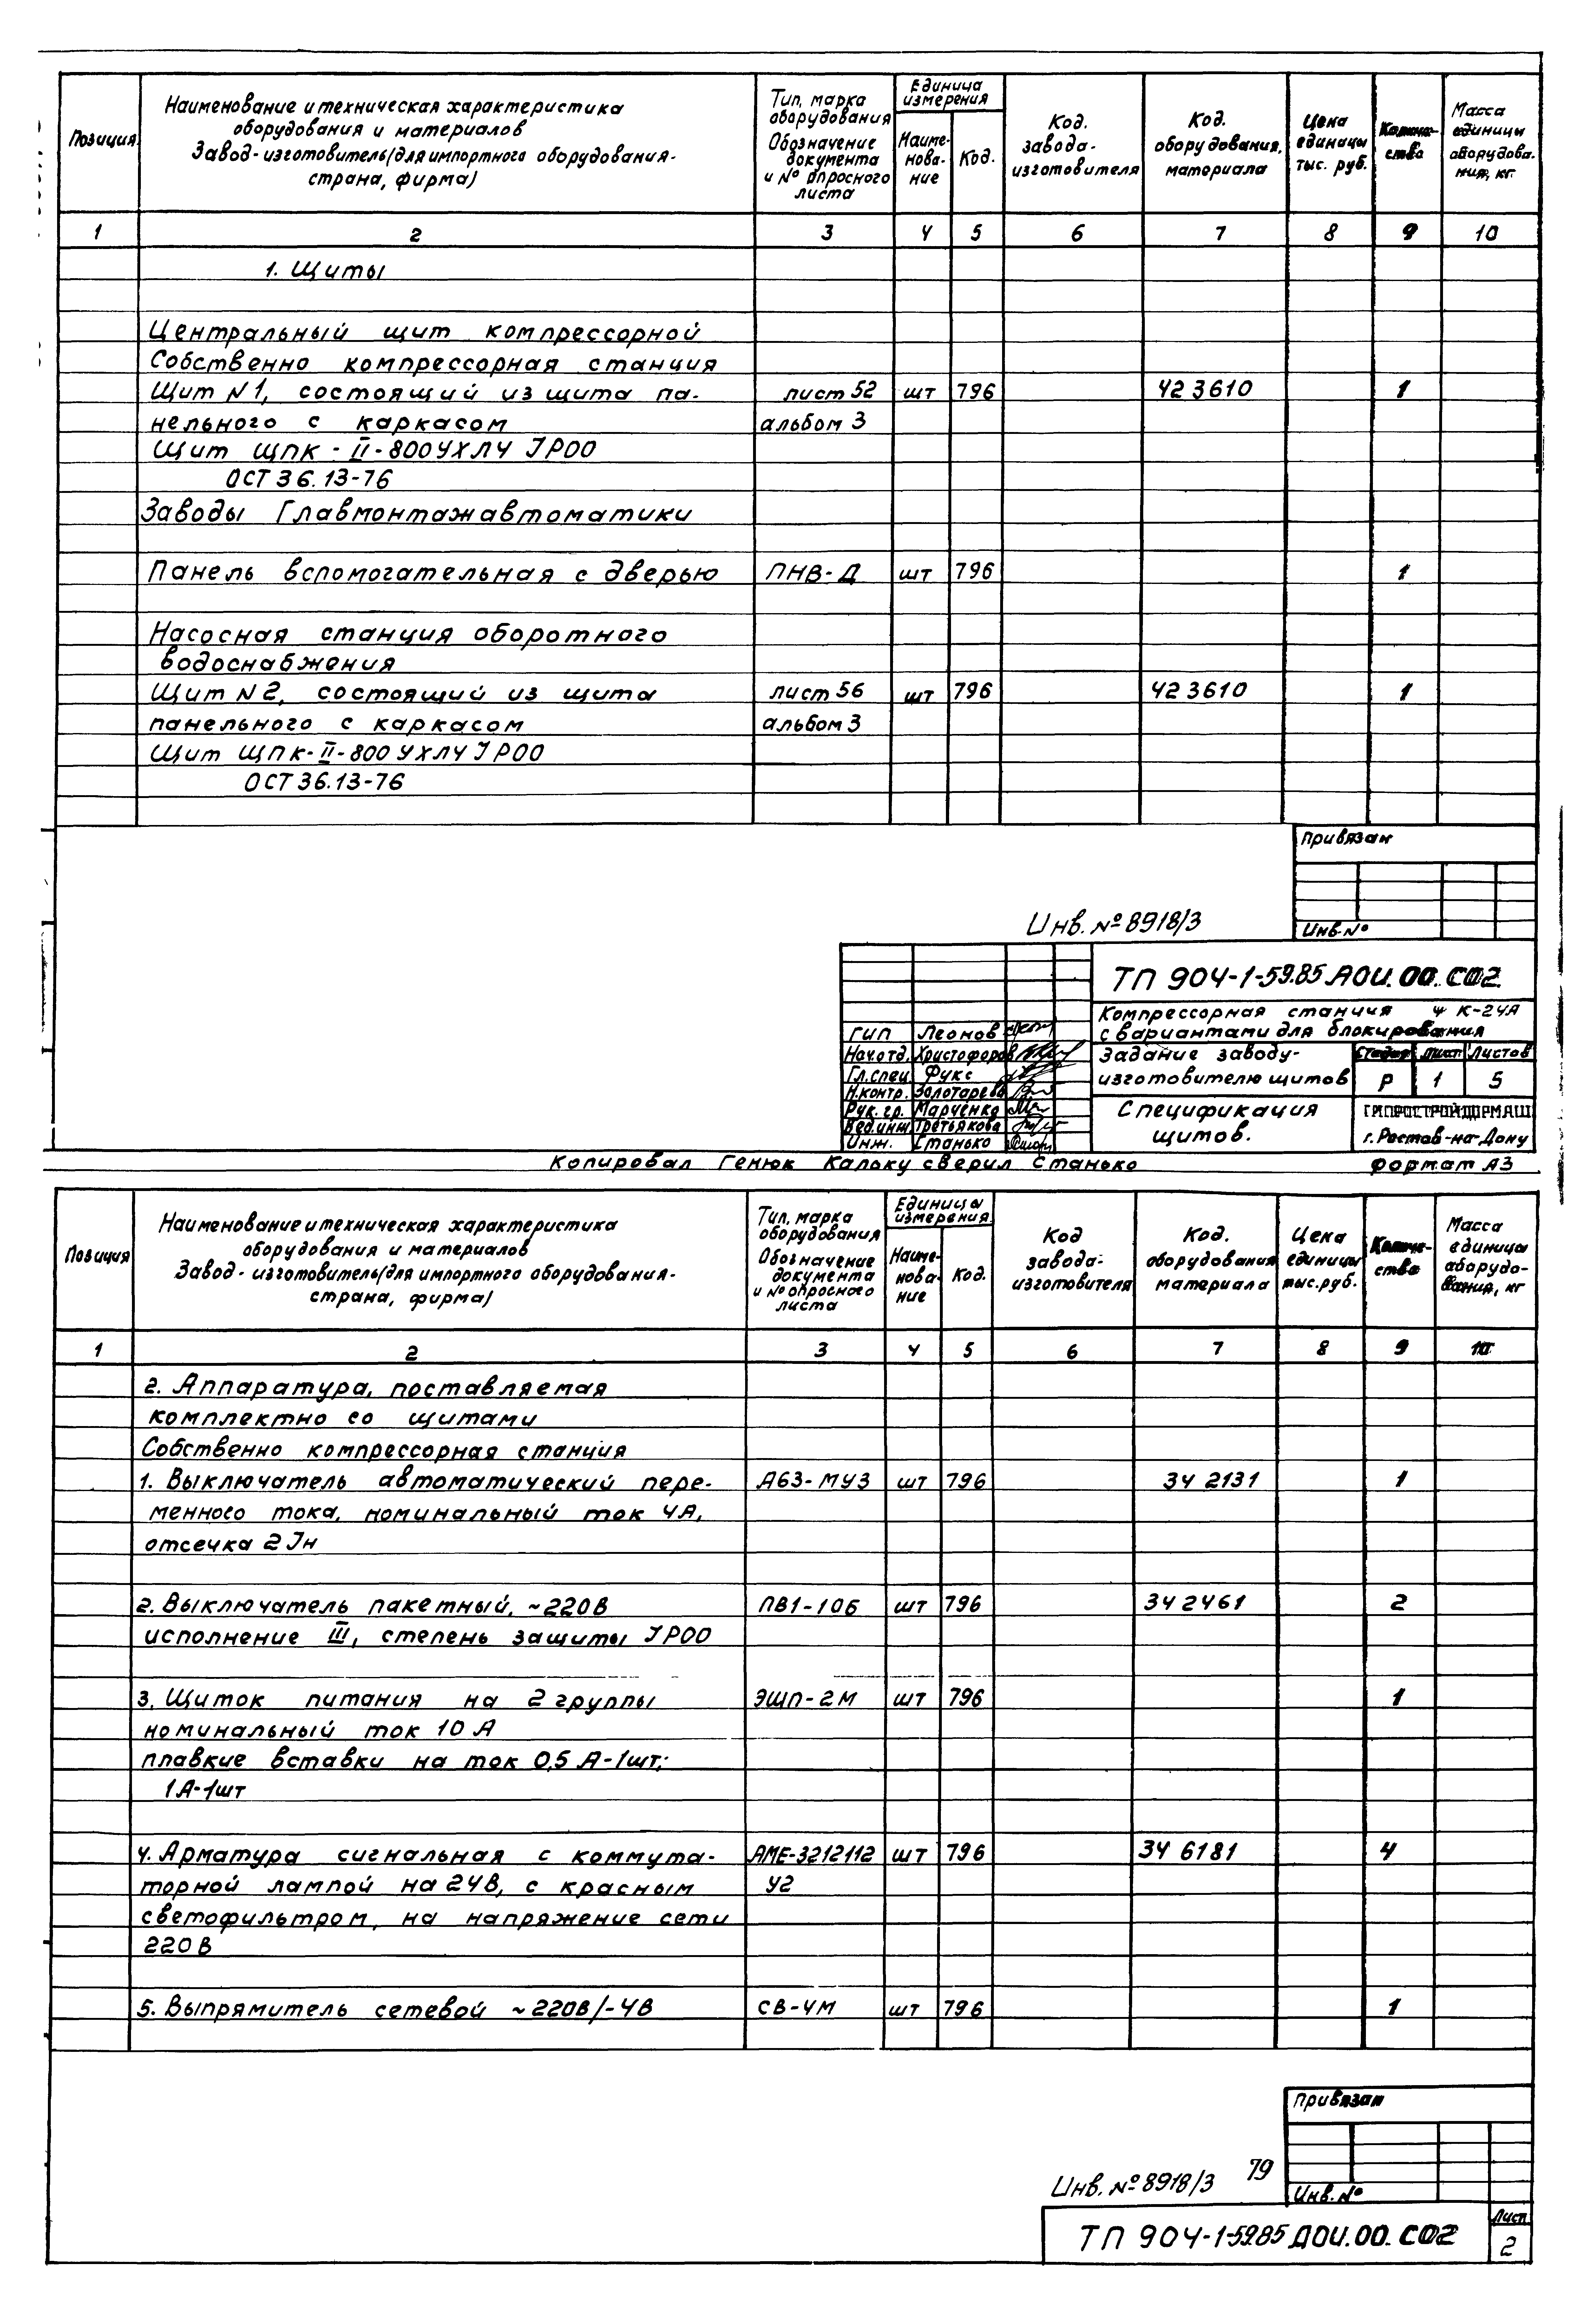 Позиция
Наименование и техническая характеристика
оборудования и материалов
Завод-изготовитель (для импортного оборудования-
страна, фирма)
Тип, марка
оборудования
Обозначение
документа
и № опросного
листа
Единица
измерения
Наиме-
нова-
ние
Код.
Код.
завода-
изготовителя
Код.
оборудования,
материала
Цена
единицы
тыс. руб.
Количе-
ство
Масса
единицы
оборудова-
ния, кг
1 2 3 4 5 6 7 8 9 10
1. Щиты
Центральный щит компрессорной
Собственно компрессорная станция
Щит N1, состоящий из щита па- лист 52 шт 796 42 3610 1
нельного с каркасом альбом 3
Щит ЩПК-II-800 УХЛ4 JP00
ОСТ 36.13-76
Заводы Главмонтажавтоматики
Панель вспомогательная с дверью ПНВ-Д шт 796 1
Насосная станция оборотного
водоснабжения
Щит N2, состоящий из щита лист 56 шт 796 42 3610 1
панельного с каркасом альбом 3
Щит ЩПК-II-800 УХЛ4 JP00
ОСТ 36.13-76
Привязан
Инв. № 8918/3
Инв.№
ТП 904-1-59.85 АОИ.00.СО2
Компрессорная станция 4К-24А
с вариантами для блокирования
ГИП Леонов
Нач.отд. Христофоров
Гл.спец. Фукс
Н.контр. Золотарева
Рук.гр. Марченко
Вед.инж. Третьякова
Инж. Станько
Задание заводу-
изготовителю щитов
Стадия Лист Листов
Р 1 5
Спецификация
щитов.
ГИПРОСТРОЙДОРМАШ
г. Ростов-на-Дону
Копировал Генюк Кальку сверил Станько Формат А3
Позиция
Наименование и техническая характеристика
оборудования и материалов
Завод-изготовитель (для импортного оборудования-
страна, фирма)
Тип, марка
оборудования
Обозначение
документа
и № опросного
листа
Единицы
измерения
Наиме-
нова-
ние
Код.
Код
завода-
изготовителя
Код.
оборудования
материала
Цена
единицы
тыс. руб.
Количе-
ство
Масса
единицы
оборудо-
вания, кг
1 2 3 4 5 6 7 8 9 10
2. Аппаратура, поставляемая
комплектно со щитами
Собственно компрессорная станция
1. Выключатель автоматический пере- А63-МУ3 шт 796 34 2131 1
менного тока, номинальный ток 4А,
отсечка 2Jн
2. Выключатель пакетный, ~220В ПВ1-10Б шт 796 34 2461 2
исполнение III, степень защиты JP00
3. Щиток питания на 2 группы ЭЩП-2М шт 796 1
номинальный ток 10 А
плавкие вставки на ток 0,5 А-1шт;
1А-1шт
4. Арматура сигнальная с коммута- АМЕ-3212112 шт 796 34 6181 4
торной лампой на 24В, с красным У2
светофильтром, на напряжение сети
220В
5. Выпрямитель сетевой ~220В/-4В СВ-4М шт 796 1
Привязан
Инв. № 8918/3 79
Инв. №
ТП 904-1-59.85 АОИ.00.СО2
Лист
2